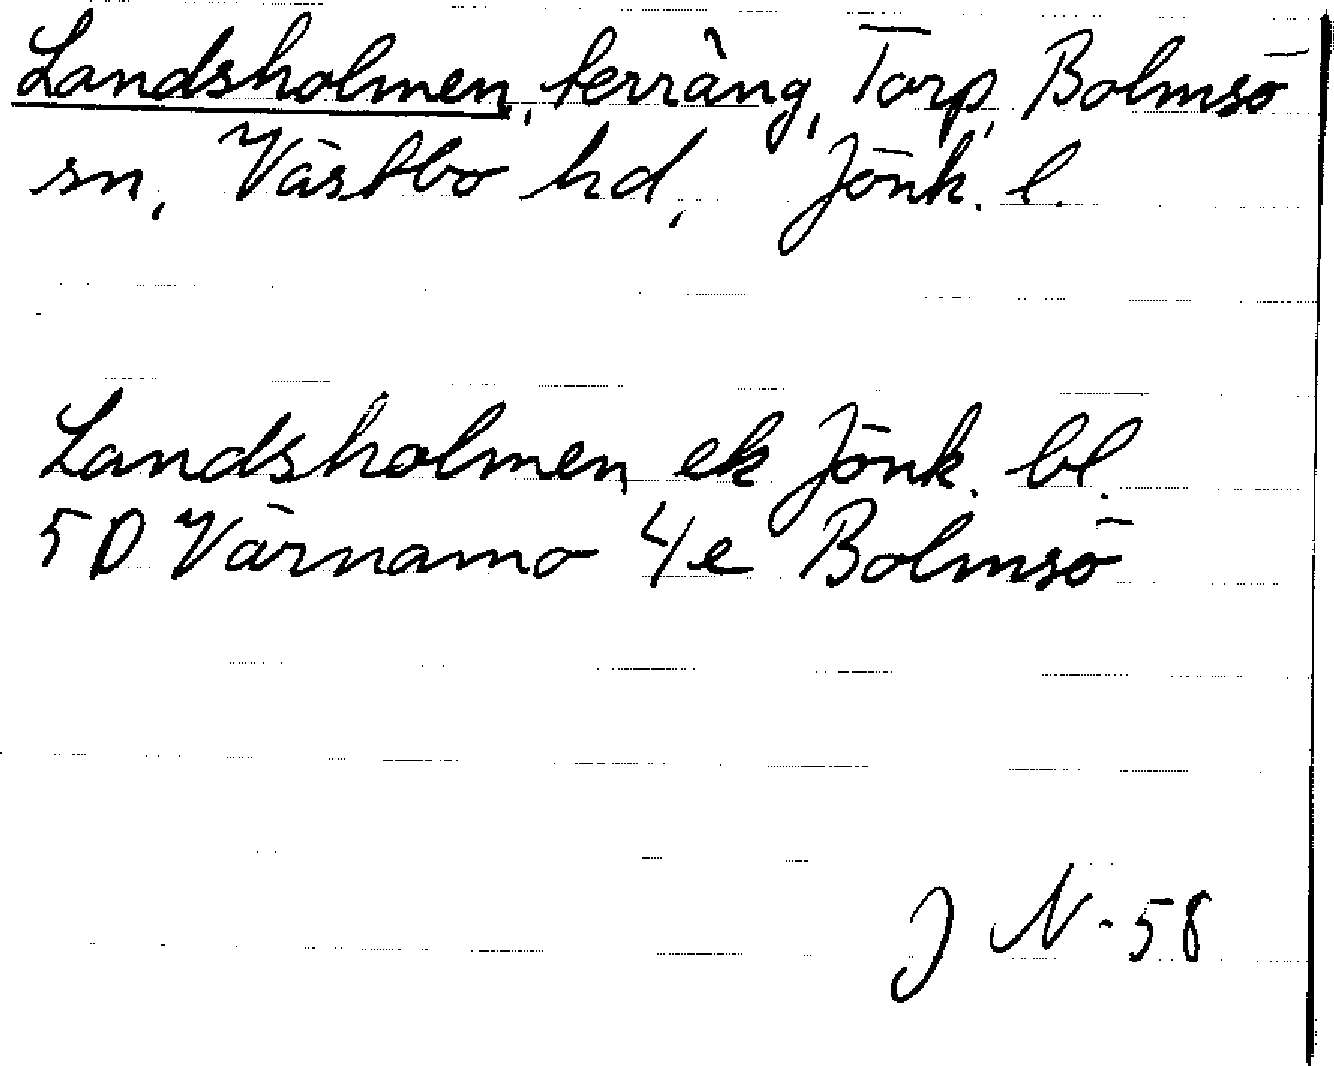 Landsholmen, terräng, Torp, Bolmsö
sn, Västbo hd, Jönk. l.
Landsholmen ek Jönk. bl.
5D Värnamo 4e Bolmsö
J N-58